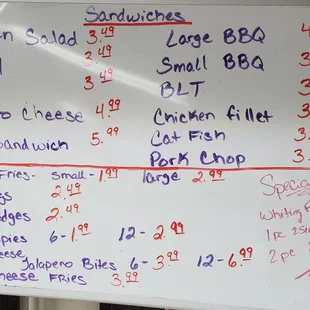 Sandwiches
n Salad 3.49
3.49
3.49
o Cheese 4.99
andwich 5.99
Large BBQ 4
Small BBQ 3
BLT 3
Chicken fillet 3
Cat Fish 3.
Pork Chop 3.
Fries- small - 1.99 large 2.99
gs 2.49
dges 2.49
pies 6 - 1.99 12 - 2.99
eese
Jalapeno Bites 6 - 3.99 12 - 6.99
heese Fries 3.99
Specia
Whiting F
1pc 2Si
2 pc